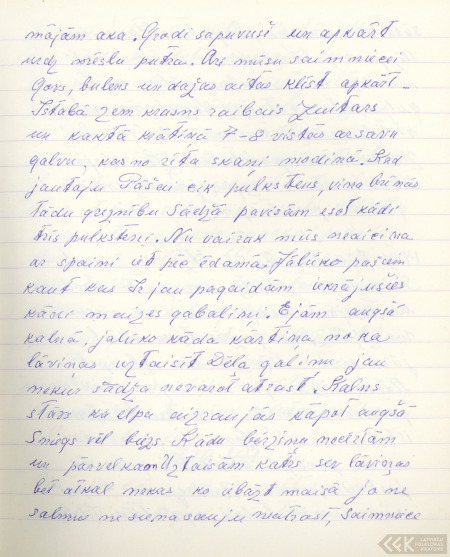 mājām aka. Grodi sapuvuši un apkārt
urdz mēslu putra. Arī mūsu saimniecei
Govs, bulens un dažas aitas klīst apkārt.
Istabā zem krasns raibais Juitars
un kaktā krātiņā 7-8 vistas ar savu
gaili, kas no rīta skaņi modina. Kad
jautaju Pāšai cik pulkstens, viņa brīnās
tādu greznību Sādžā pavisam esot kādi
trīs pulksteņi. Nu vairak mūs neaicina
ar spaini iet pēc ēdamā. Jālūko pašiem
kaut kas. Ir jau pagaidām iekrājušies
kādi maizes gabaliņi. Ejām augšā
kalnā, jalūko kāda kārtiņa no ka
lāviņas uztaisīt. Dēļa gabaliņu jau
nekur sādžā nevarot atrast. Kalns
stāvs ka elpa aizraujās kāpot augšā
Sniegs vēl biezs. Kādu bērziņu nocērtam
un pārvelkam. Uztaisām katrs sev lāviņas
bet atkal nekas ko iebāzt maisā jo ne
salmu ne siena sauju neatrast, Saimniece
LATVIEŠU FOLKLORAS KRĀTUVE